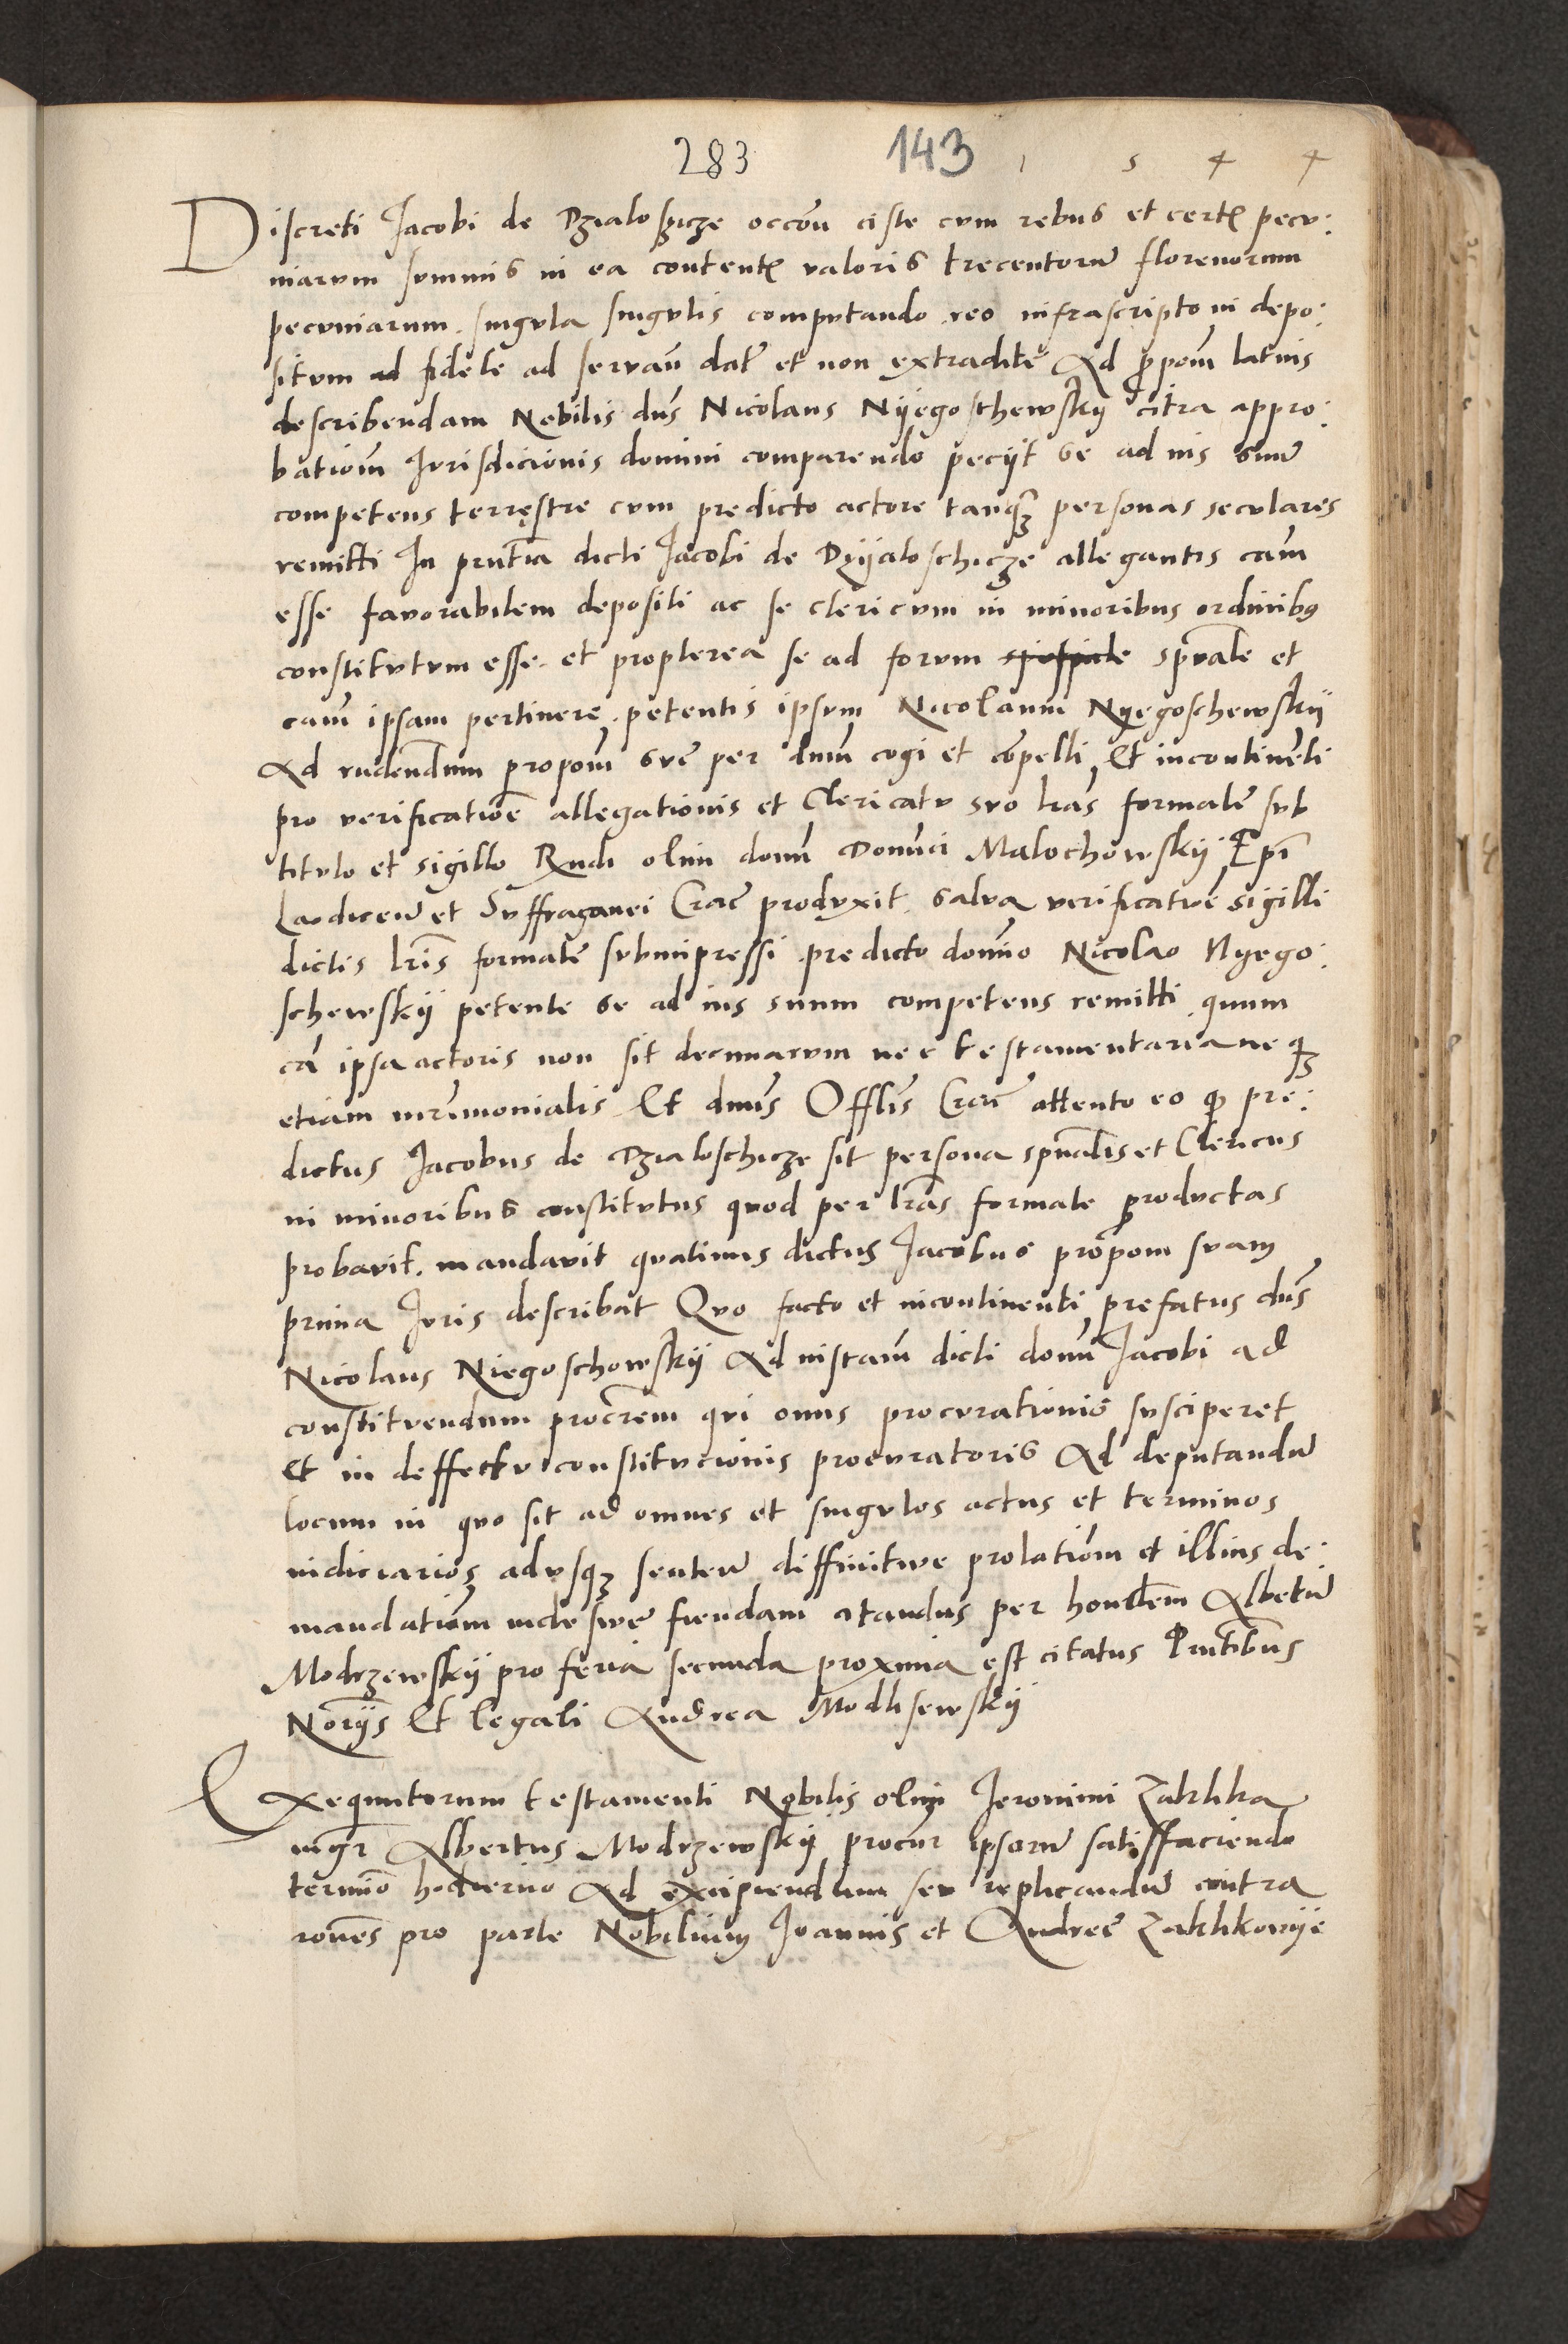 283 143 1 5 4 4
Discreti Jacobi de Dzialoschicze occõn ciste cum rebus et cert pecu:
niarum summis in ea content valoris trecentorũ florenorum
pecuniarum singula singulis computando reo infrascripto in depo:
situm ad fidele ad servañ dat̃ et non extradite Ad propom̃ latius
describendam Nobilis dũs Nicolaus Nÿegoschewskÿ citra appro:
bationem Jurisdicionis domini comparendo peciÿt se ad ius suũ
competens terręstre cum predicto actore tanqꝫ personas seculares
remitti In pñtia dicti Jacobi de Dzÿaloschicze allegantis cam̃
esse favorabilem depositi ac se clericum in minoribus ordinibꝰ
constitutum esse et propterea se ad forum spũale et
cam̃ ipsam pertinere petentis ipsum Nicolaum Nyegoschewskÿ
Ad videndum propom̃ sue per dnm̃ cogi et cõpelli Et incontinẽti
pro verificatiõe allegationis et Clericatu suo lras̃ formate sub
titulo et sigillo Rṽdi olim domĩ Domĩci Malochowskÿ Ep̃i
Laodiceñ et Suffraganei Crac̃ produxit salva verificatiõe sigilli
dictis lris̃ formate subimpressi predicto domĩo Nicolao Nyego:
schewskÿ petente se ad ius suum competens remitti quum
cã ipsa actoris non sit decimarum nec testamentaria neqꝫ
etiam mrĩmonialis Et dnũs Offlĩs Crac̃ attento eo qꝫ pre:
dictus Jacobus de Dzialoschicze sit persona spũalis et Clericus
in minoribus constitutus quod per lrãs formate productas
probavit mandavit quatinus dictus Jacobus propom̃ suam
prima Juris describat Quo facto et incontinenti prefatus dũs
Nicolaus Niegoschowskÿ Ad instam̃ dicti domĩ Jacobi ad
constituendum procrem̃ qui onus procurationis susciperet
Et in deffectu constitucionis procuratoris Ad deputandũ
locum in quo sit ad omnes et singulos actus et terminos
iudiciarios adusqꝫ senteñ diffinitive prolatiom̃ et illius de:
mandatiom̃ fiendam citandus per honblem̃ Albertũ
Modrzewskÿ pro feria secunda proxima est citatus Pñtibus
Norÿs Et legali Andrea Modlisewskÿ
Exequutorum testamenti Nobilis olim Jeronimi Zaklika
mgr̃ Albertus Modrzewskÿ procur̃ ipsorũ satisffaciendo
termĩo hodierno Ad excipiendum seu replicandũ contra
rõnes pro parte Nobilium Joannis et Andree Zaklikovÿe